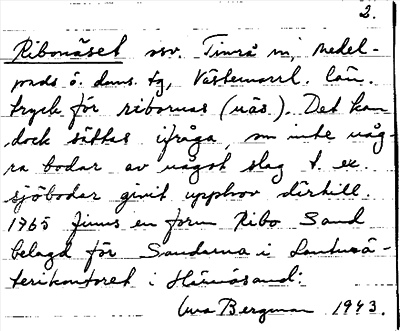 2.
Ribonäset osv. Timrå sn, Medel-
pads ö. doms. tg, Västernorrl. län.
tryck för ribornas (näs.). Det kan
dock sättas ifråga, om inte någ-
ra bodar av något slag t. ex.
sjöbodar givit upphov därtill.
1765 finns en form Ribo Sand
belagd för Sandarna i Lantmä-
terikontoret i Härnösand:
Bergman 1943.